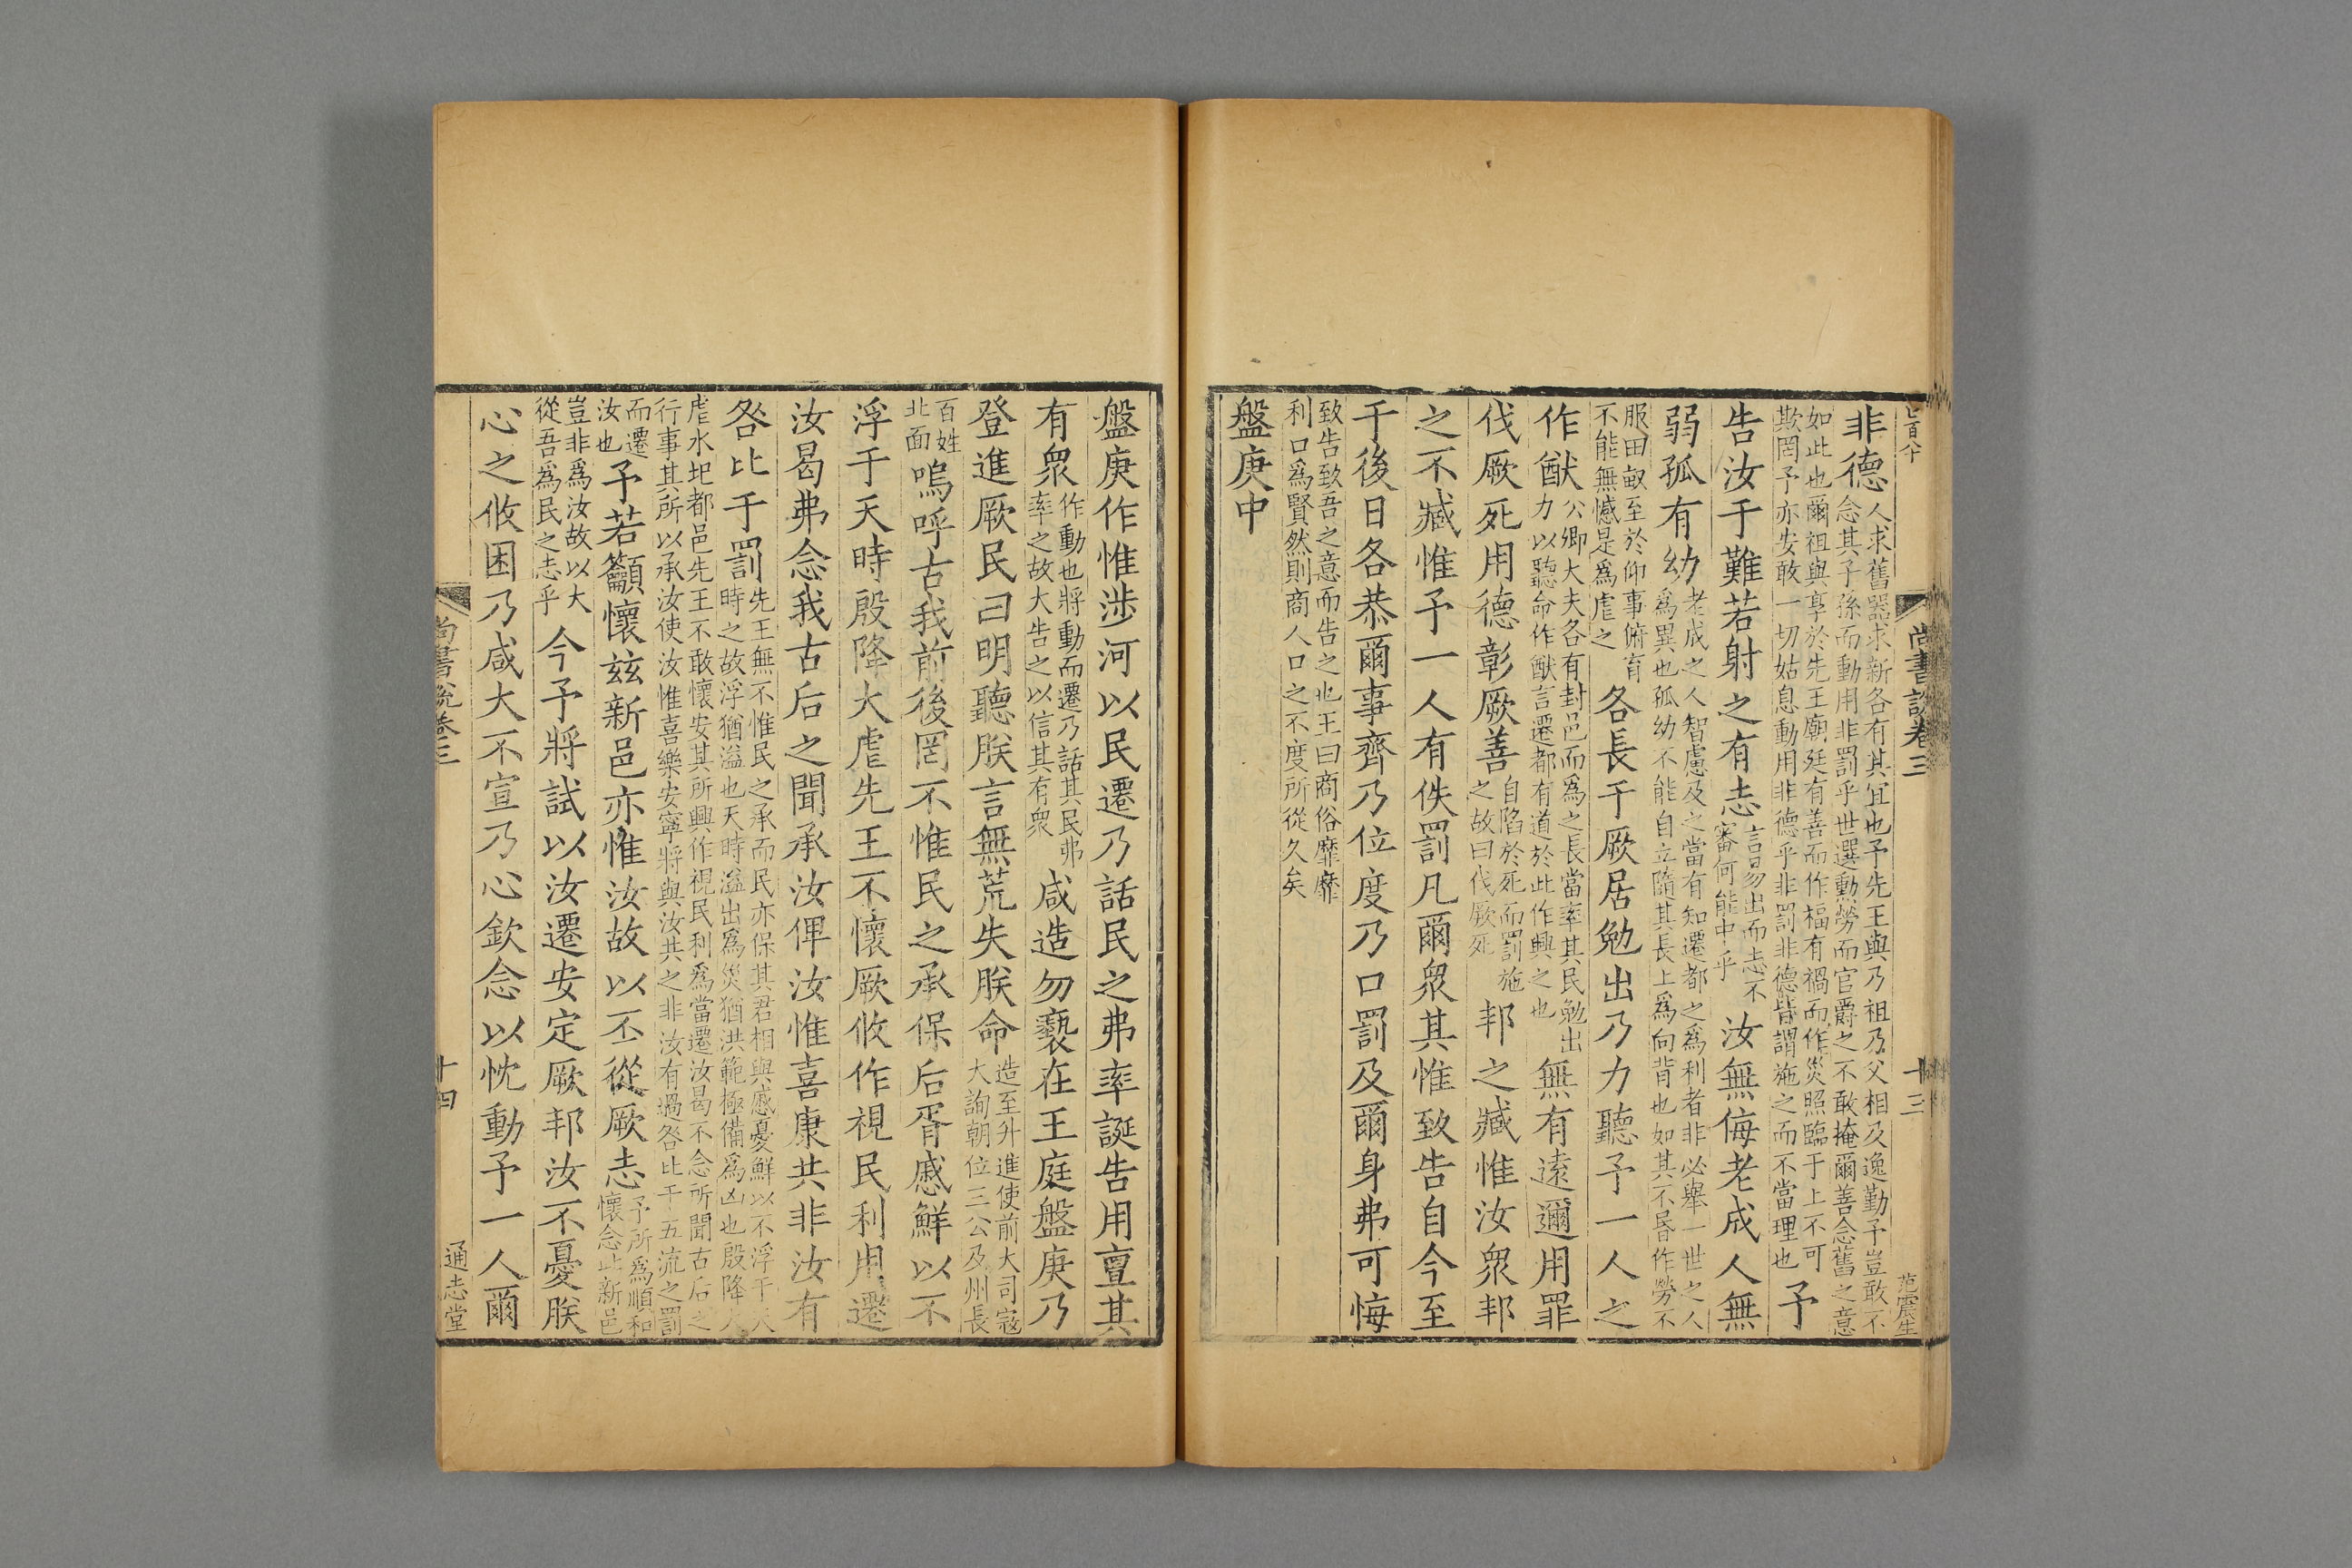 尚書說卷三 十三 范震生
非德人求舊器求新各有其宜也予先王與乃祖乃父相及逸勤予豈敢不念其子孫而動用非罰乎世選勲勞而官爵之不敢掩爾善念舊之意
如此也爾祖與享於先王廟廷有善而作福有禍而作災照臨于上不可欺罔予亦安敢一切姑息動用非德乎非罰非德皆謂施之而不當理也予
告汝于難若射之有志言易出而志不審何能中乎汝無侮老成人無
弱孤有幼老成之人智慮及之當有知遷都之爲利者非必舉一世之人爲異也孤幼不能自立隨其長上爲向背也如其不昬作勞不
服田畝至於仰事俯育不能無憾是爲虐之各長于厥居勉出乃力聽予一人之
作猷公卿大夫各有封邑而爲之長當率其民勉出力以聽命作猷言遷都有道於此作興之也無有遠邇用罪
伐厥死用德彰厥善自陷於死而罰施之故曰伐厥死邦之臧惟汝衆邦
之不臧惟予一人有佚罰凡爾衆其惟致告自今至
于後日各恭爾事齊乃位度乃口罰及爾身弗可悔
致告致吾之意而告之也王曰商俗靡靡利口爲賢然則商人口之不度所從久矣
盤庚中
盤庚作惟涉河以民遷乃話民之弗率誕告用亶其
有衆作動也將動而遷乃話其民弗率之故大告之以信其有衆咸造勿褻在王庭盤庚乃
登進厥民曰明聽朕言無荒失朕命造至升進使前大司寇大詢朝位三公及州長
百姓北面嗚呼古我前後罔不惟民之承保后胥慼鮮以不
浮于天時殷降大虐先王不懷厥攸作視民利用遷
汝曷弗念我古后之聞承汝俾汝惟喜康共非汝有
咎比于罰先王無不惟民之承而民亦保其君相與慼憂鮮以不浮于天時之故浮猶溢也天時溢出爲災猶洪範極備爲凶也殷降大
虐水圮都邑先王不敢懷安其所興作視民利爲當遷汝曷不念所聞古后之行事其所以承汝使汝惟喜樂安寧將與汝共之非汝有過咎比于五流之罰
而遷汝也予若籲懷兹新邑亦惟汝故以丕從厥志予所爲順和懷念此新邑
豈非爲汝故以大從吾爲民之志乎今予將試以汝遷安定厥邦汝不憂朕
心之攸困乃咸大不宣乃心欽念以忱動予一人爾
尚書說卷三 十四 通志堂